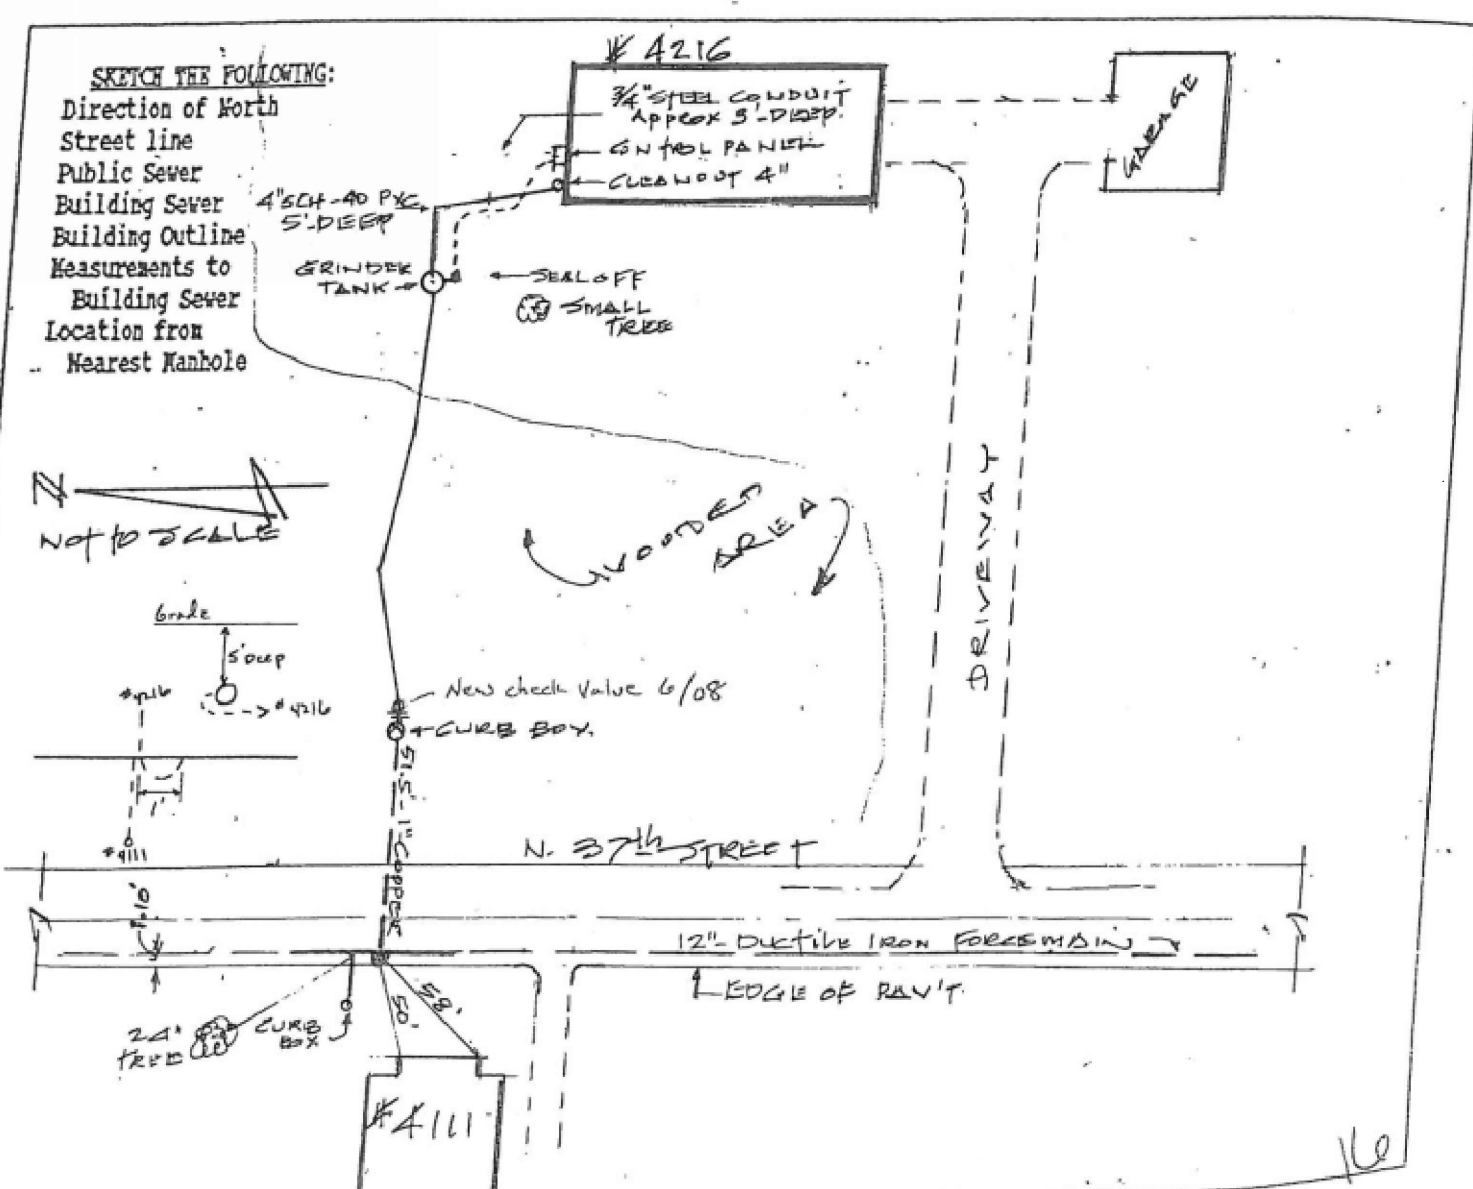 SKETCH THE FOLLOWING:
Direction of North
Street line
Public Sewer
Building Sewer
Building Outline
Measurements to
Building Sewer
Location from
Nearest Manhole
# 4216
3/4" STEEL CONDUIT
Approx 3'-DEEP.
CNTROL PANEL
CLEANOUT 4"
GARAGE
4" SCH-40 PVC
5'-DEEP
GRINDER
TANK
SEAL OFF
SMALL
TREE
N
NOT TO SCALE
WOODED
AREA
DRIVEWAY
Grade
5' Deep
#4216
#4216
1'
#4111
New check Valve 6/08
CURB BOX.
51.5-1" COPPER
N. 37th STREET
12"-DUCTILE IRON FORCEMAIN
EDGE OF PAV'T.
50'
58'
24"
TREE
CURB
BOX
#4111
16